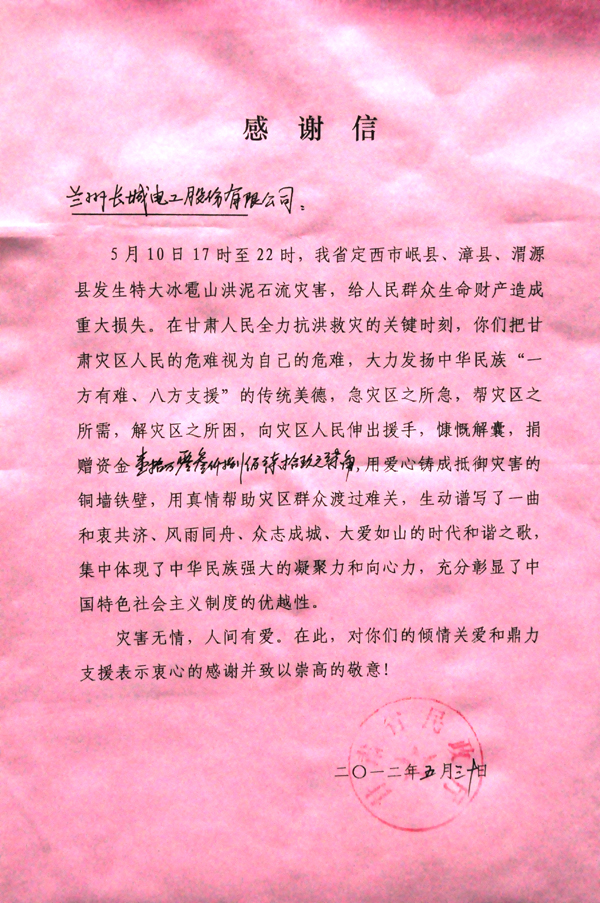 感谢信
兰州长城电工股份有限公司:
5月10日17时至22时，我省定西市岷县、漳县、渭源
县发生特大冰雹山洪泥石流灾害，给人民群众生命财产造成
重大损失。在甘肃人民全力抗洪救灾的关键时刻，你们把甘
肃灾区人民的危难视为自己的危难，大力发扬中华民族“一
方有难、八方支援”的传统美德，急灾区之所急，帮灾区之
所需，解灾区之所困，向灾区人民伸出援手，慷慨解囊，捐
赠资金，用爱心铸成抵御灾害的
铜墙铁壁，用真情帮助灾区群众渡过难关，生动谱写了一曲
和衷共济、风雨同舟、众志成城、大爱如山的时代和谐之歌，
集中体现了中华民族强大的凝聚力和向心力，充分彰显了中
国特色社会主义制度的优越性。
灾害无情，人间有爱。在此，对你们的倾情关爱和鼎力
支援表示衷心的感谢并致以崇高的敬意！
甘肃省民政厅
二〇一二年五月三十日